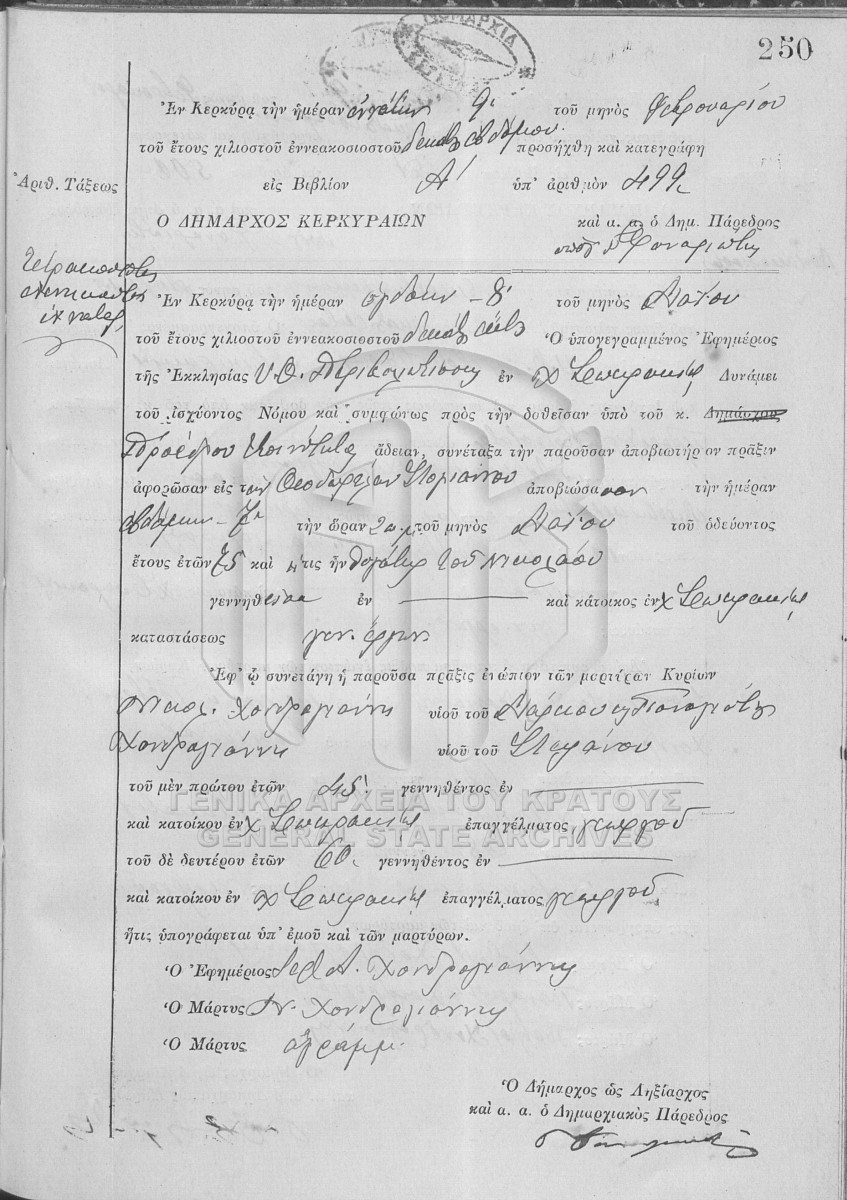 ΔΗΜΑΡΧΙΑ
250
Ἐν Κερκύρᾳ τὴν ἡμέραν ἐννάτην 9. τοῦ μηνὸς Φεβρουαρίου
τοῦ ἔτους χιλιοστοῦ ἐννεακοσιοστοῦ δεκάτου ἑβδόμου προσήχθη καὶ κατεγράφη
Ἀριθ. Τάξεως
εἰς Βιβλίον Α' ὑπ' ἀριθμὸν 499
Ο ΔΗΜΑΡΧΟΣ ΚΕΡΚΥΡΑΙΩΝ καὶ α. α. ὁ Δημ. Πάρεδρος
Τετρακόσιοι
ἐννενήκοντα
ἐννέα
Ἐν Κερκύρᾳ τὴν ἡμέραν ὀγδόην - 8' τοῦ μηνὸς Μαΐου
τοῦ ἔτους χιλιοστοῦ ἐννεακοσιοστοῦ δεκάτου Ὁ ὑπογεγραμμένος Ἐφημέριος
τῆς Ἐκκλησίας Υ. Θ. Περιβλεπτίσσης ἐν χ Σωκρακίῳ Δυνάμει
τοῦ ἰσχύοντος Νόμου καὶ συμφώνως πρὸς τὴν δοθεῖσαν ὑπὸ τοῦ κ. Δημάρχου
Προέδρου Κοινότητος ἄδειαν, συνέταξα τὴν παροῦσαν ἀποβιωτήριον πρᾶξιν
ἀφορῶσαν εἰς τὴν Στεφάνου ἀποβιώσασαν τὴν ἡμέραν
ἑβδόμην - 7η τὴν ὥραν 2 τοῦ μηνὸς Μαΐου τοῦ ὁδεύοντος
ἔτους ἐτῶν 75 καὶ ἥτις ἦν θυγάτηρ τοῦ Νικολάου
γεννηθεῖσα ἐν καὶ κάτοικος ἐν χ Σωκρακίῳ
καταστάσεως
Ἐφ' ᾧ συνετάγη ἡ παροῦσα πρᾶξις ἐνώπιον τῶν μαρτύρων Κυρίων
Νικολ. Χονδρογιάννης υἱοῦ τοῦ Μάρκου κ Παναγιώτης
Χονδρογιάννης υἱοῦ τοῦ Στεφάνου
τοῦ μὲν πρώτου ἐτῶν 45 γεννηθέντος ἐν
ΓΕΝΙΚΑ ΑΡΧΕΙΑ ΤΟΥ ΚΡΑΤΟΥΣ
καὶ κατοίκου ἐν χ Σωκρακίῳ ἐπαγγέλματος γεωργοῦ
GENERAL STATE ARCHIVES
τοῦ δὲ δευτέρου ἐτῶν 60 γεννηθέντος ἐν
καὶ κατοίκου ἐν χ Σωκρακίῳ ἐπαγγέλματος γεωργοῦ
ἥτις ὑπογράφεται ὑπ' ἐμοῦ καὶ τῶν μαρτύρων.
Ὁ Ἐφημέριος Χονδρογιάννης
Ὁ Μάρτυς Ν. Χονδρογιάννης
Ὁ Μάρτυς ἀγράμμ.
Ὁ Δήμαρχος ὡς Ληξίαρχος
καὶ α. α. ὁ Δημαρχιακὸς Πάρεδρος